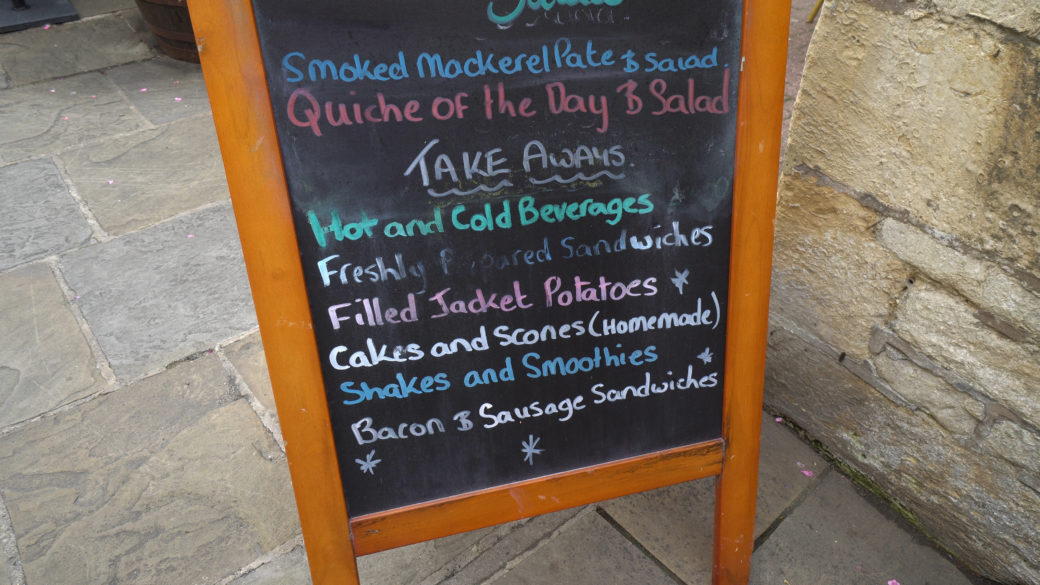 Smoked Mackerel Pate & Salad.
Quiche of the Day & Salad
TAKE AWAYS.
Hot and Cold Beverages
Freshly Prepared Sandwiches
Filled Jacket Potatoes
Cakes and Scones (Homemade)
Shakes and Smoothies
Bacon & Sausage Sandwiches